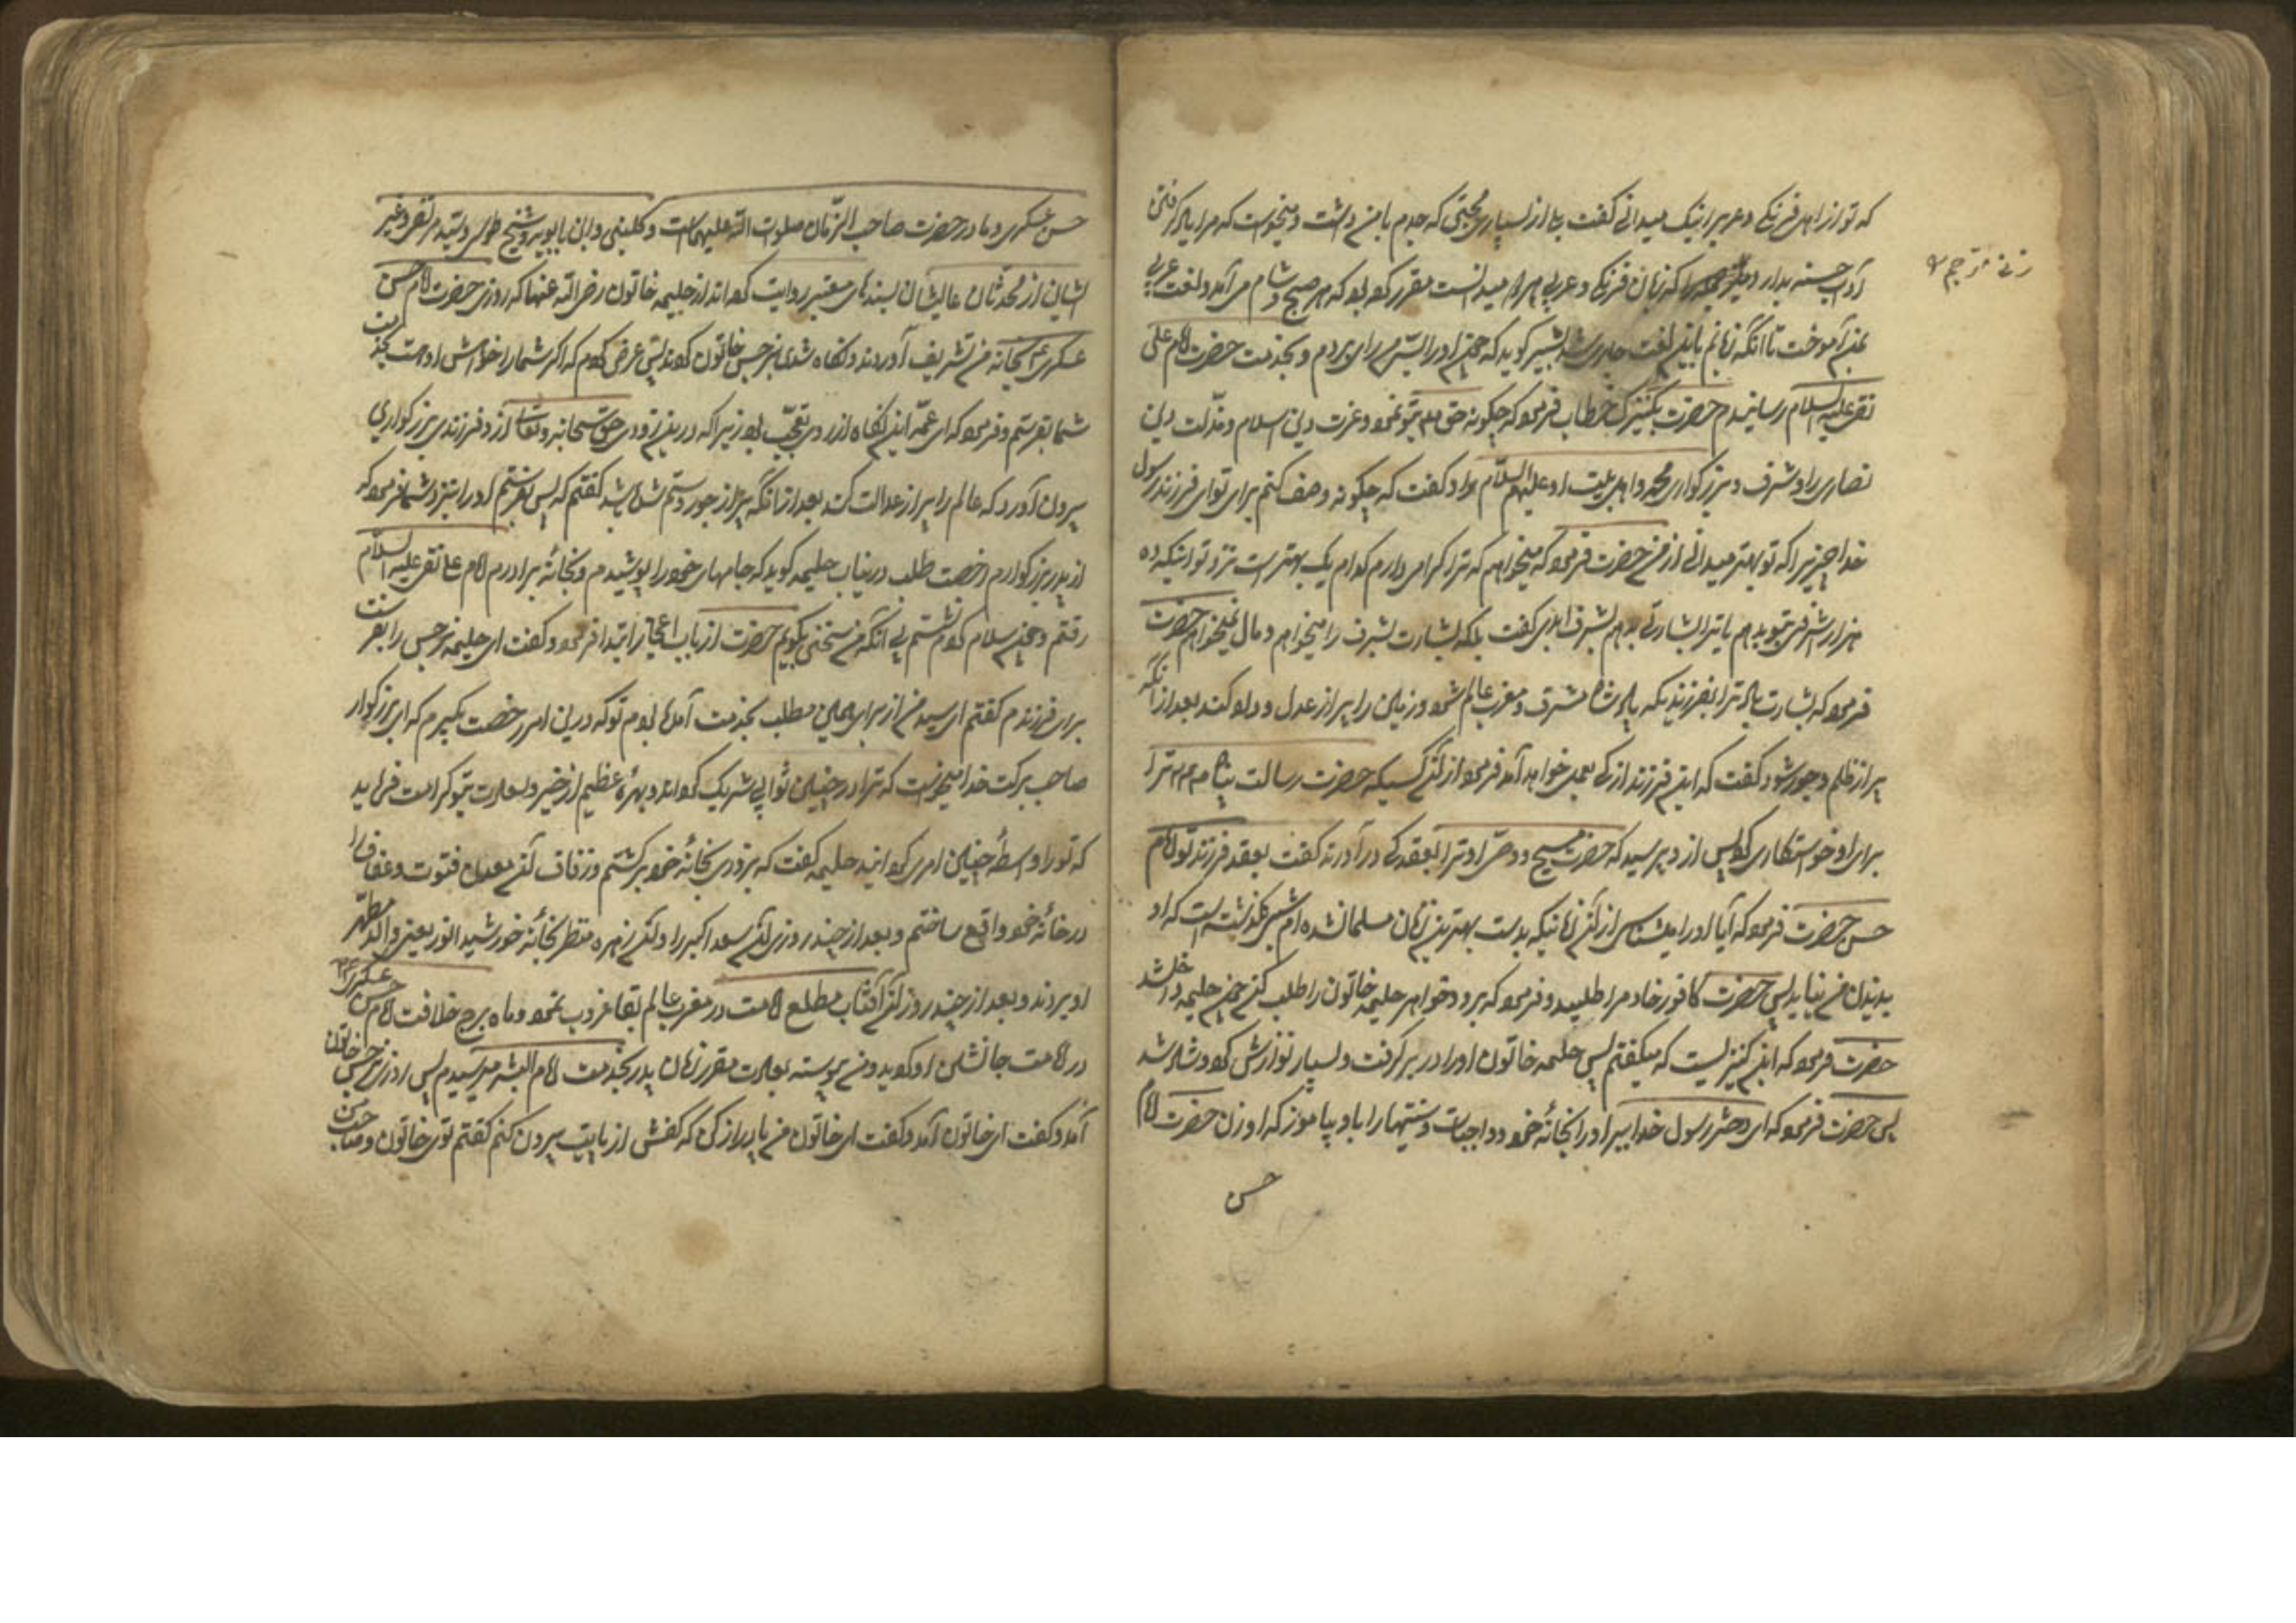 که تو از اهل فرنگی و عربی را نیک میدانی گفت بلی از بسیاری محبتی که جدم با من داشت و میخواست که مرا یاد گرفتن
آداب حسنه بدارد را که زبان فرنگی و عربی هر دو میدانست مقرر کرده بود که هر صبح و شام می آمد و لغت عربی
بمن آموخت تا آنکه زبانم باین لغت جاری شد بشیر گوید که چون او را بسر من رای بردم و بخدمت حضرت امام علی
نقی علیه السلام رسانیدم حضرت بکنیزک خطاب فرمود که چگونه حق بتو نمود عزت دین اسلام و مذلت دین
نصاری را و شرف و بزرگواری محمد و اهل بیت او علیهم السلام را او گفت که چگونه وصف کنم برای تو ای فرزند رسول
خدا چیزیرا که تو بهتر میدانی از من حضرت فرمود که میخواهم که ترا گرامی دارم کدام یک بهتر است نزد تو اینکه ده
هزار اشرفی بتو بدهم یا ترا بشارتی بدهم بشرف ابدی گفت بلکه بشارت بشرف را میخواهم و مال نمیخواهم حضرت
فرمود که بشارت باد ترا بفرزندیکه پادشاه مشرق و مغرب عالم شود و زمین را پر از عدل و داد کند بعد از آنکه
پر از ظلم و جور شود گفت که این فرزند از کی بعمل خواهد آمد فرمود از آن کسیکه حضرت رسالت پناه ترا
برای او خواستگاری کرد پس از او پرسید که حضرت مسیح و وصی او ترا بعقد کی در آوردند گفت بعقد فرزند تو امام
حسن حضرت فرمود که آیا او را میشناسی از آن زمانیکه بدست بهترین زنان مسلمان شده ام شبی نگذشته است که او
بدیدن من نیاید پس حضرت کافور خادم را طلبید و فرمود که برو و خواهرم حلیمه خاتون را طلب کن چون حلیمه داخل شد
حضرت فرمود که این کنیزیست که میگفتم پس حلیمه خاتون او را در بر گرفت و بسیار نوازش کرد و شاد شد
پس حضرت فرمود که ای دختر رسول خدا ببر او را بخانه خود و واجبات و سنتها را باو بیاموز که او زن حضرت امام
حسن
حسن عسکری و مادر حضرت صاحب الزمان صلوات الله علیهما است و کلینی و ابن بابویه و شیخ طوسی و سید مرتضی و غیر
ایشان از محدثان عالیشان بسندهای معتبر روایت کرده اند از حلیمه خاتون رضی الله عنها که روزی حضرت امام حسن
عسکری بخانه من تشریف آوردند و نگاه تندی بنرجس خاتون کردند پس عرض کردم که اگر شما را خواهش او هست بخدمت
شما بفرستم و فرمود که ای عمه این نگاه از روی تعجب بود زیرا که درین زودی حق سبحانه و تعالی از او فرزندی بزرگواری
بیرون آورد که عالم را پر از عدالت کند بعد از آنکه پر از جور و ستم شده باشد گفتم که پس بفرستم او را بنزد شما فرمود که
از پدر بزرگوارم رخصت طلب درین باب حلیمه گوید که جامهای خود را پوشیدم و بخانه برادرم امام علی نقی علیه السلام
رفتم و چون سلام کردم نشستم بی آنکه من سخنی بگویم حضرت از باب اعجاز ابتدا فرمود و گفت ای حلیمه نرجس را بفرست
برای فرزندم گفتم ای سید من از برای همین مطلب بخدمت آمده بودم تو که درین امر رخصت بگیرم که ای بزرگوار
صاحب برکت خدا میخواست که ترا در چنین ثوابی شریک گرداند و بهرهٔ عظیم از خیر و سعادت بتو کرامت فرماید
که تو را واسطهٔ چنین امری گردانید حلیمه گفت که بزودی بخانه خود برگشتم و زفاف آن معدن فتوت و عفاف را
در خانه خود واقع ساختم و بعد از چند روزی آن سعد اکبر را و آن زهره منظر بخانه خورشید انور یعنی والد مطهر
او بردند و بعد از چند روز آن آفتاب مطلع امامت در مغرب عالم بقا غروب نمود و ماه برج خلافت امام حسن عسکری
در امامت جانشین او گردید و من پیوسته بعادت مقرر زمان پدر بخدمت امام البشر میرسیدم پس روزی نرجس خاتون
آمد و گفت ای خاتون آمد و گفت ای خاتون من پا دراز کن که کفش از پایت بیرون کنم گفتم توی خاتون و صاحب من